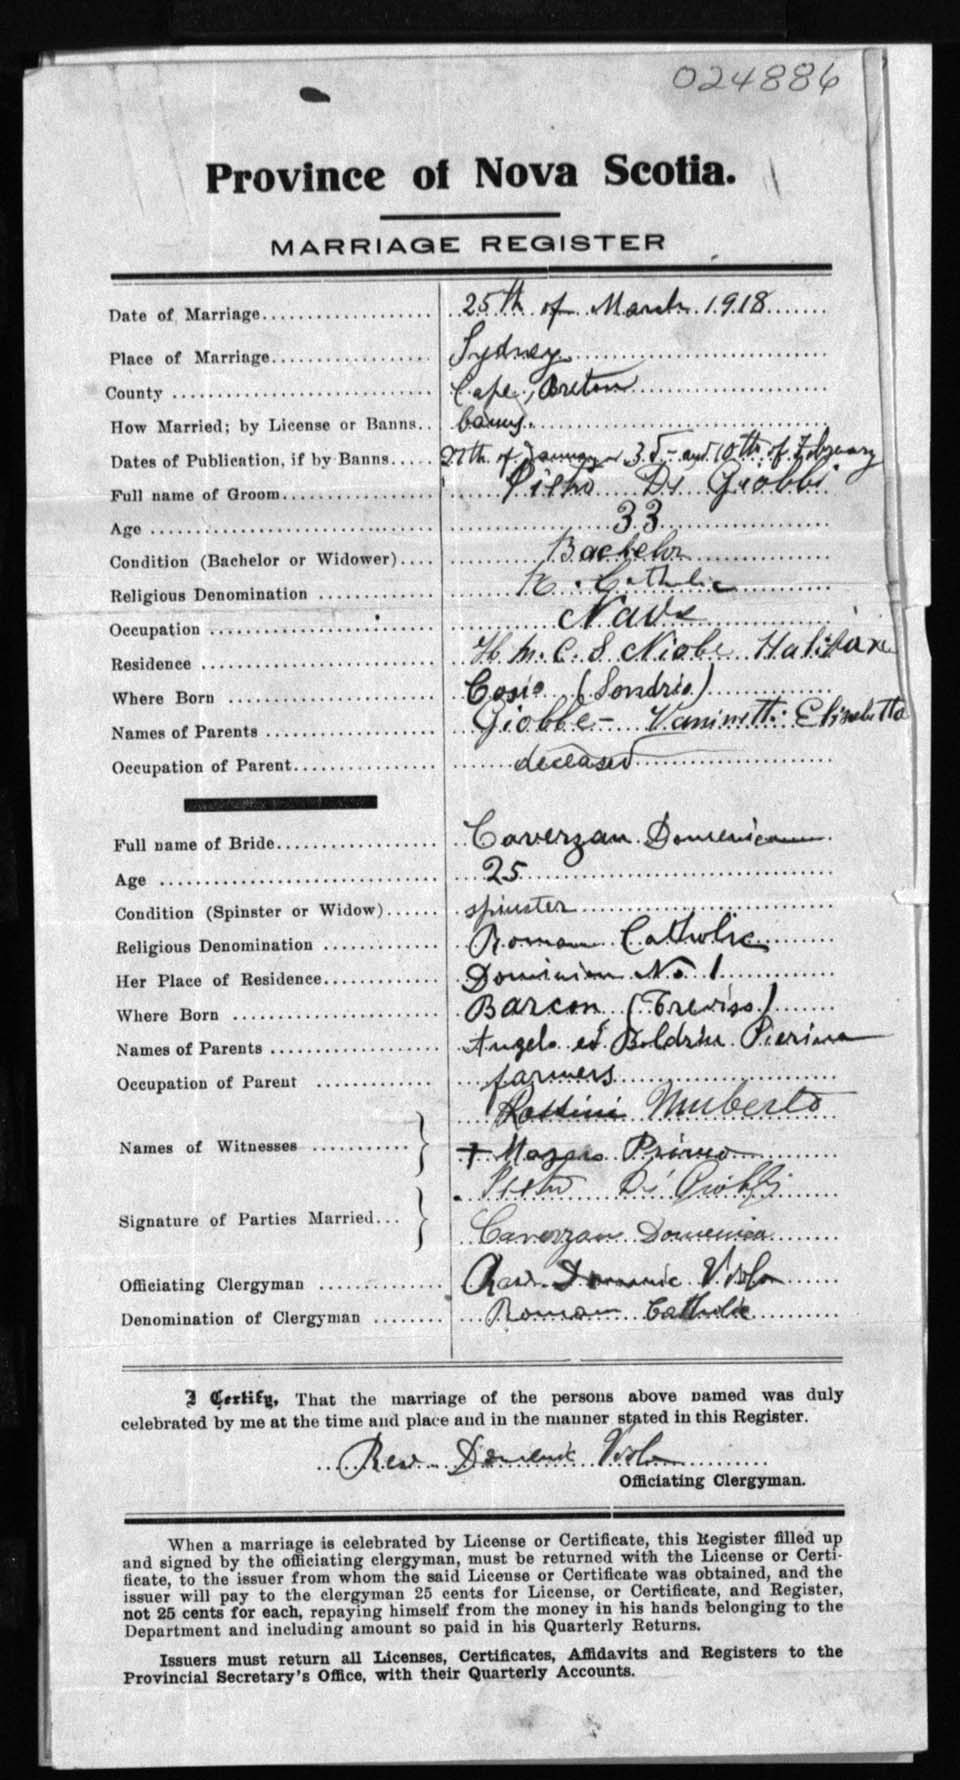 024886
Province of Nova Scotia.
MARRIAGE REGISTER
Date of Marriage 25th of March 1918
Place of Marriage Sydney
County Cape Breton
How Married; by License or Banns banns.
Dates of Publication, if by Banns 27th of January 3d and 10th of February
Full name of Groom Pietro De Giobbi
Age 33
Condition (Bachelor or Widower) Bachelor
Religious Denomination R. Catholic
Occupation
Residence H. M. C. S Niobe Halifax
Where Born Cosio (Sondrio)
Names of Parents Giobbe - Vaninetti Elisabetta
Occupation of Parent deceased
Full name of Bride Caverzan Domenica
Age 25
Condition (Spinster or Widow) spinster
Religious Denomination Roman Catholic
Her Place of Residence Dominion No. 1
Where Born Barcon (Treviso)
Names of Parents Angelo ed Boldrin Pierina
Occupation of Parent farmers
Umberto
Names of Witnesses
+ Primo
Pietro De Giobbi
Signature of Parties Married
Caverzan Domenica
Officiating Clergyman Rev. Domenic Viola
Denomination of Clergyman Roman Catholic
I Certify, That the marriage of the persons above named was duly
celebrated by me at the time and place and in the manner stated in this Register.
Rev. Domenic Viola
Officiating Clergyman.
When a marriage is celebrated by License or Certificate, this Register filled up
and signed by the officiating clergyman, must be returned with the License or Certi-
ficate, to the issuer from whom the said License or Certificate was obtained, and the
issuer will pay to the clergyman 25 cents for License, or Certificate, and Register,
not 25 cents for each, repaying himself from the money in his hands belonging to the
Department and including amount so paid in his Quarterly Returns.
Issuers must return all Licenses, Certificates, Affidavits and Registers to the
Provincial Secretary's Office, with their Quarterly Accounts.